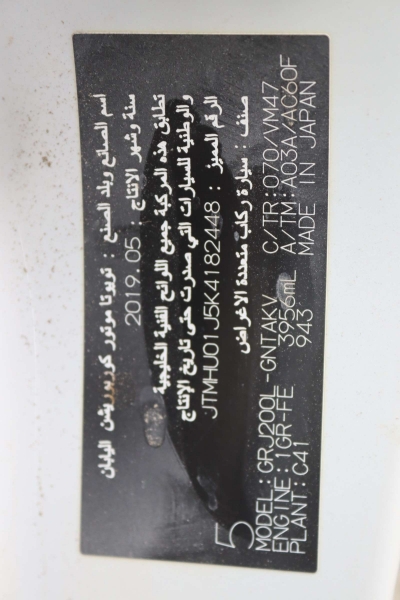 أسم الصانع وبلد الصنع : تويوتا موتور كوربوريشن اليابان
سنة وشهر الإنتاج : 2019.05
تطابق هذه المركبة جميع اللوائح الفنية الخليجية
والوطنية للسيارات التي صدرت حتى تاريخ الإنتاج
الرقم المميز : JTMHU01J5K4182448
صنف : سيارة ركاب متعددة الاغراض
5
MODEL:GRJ200L-GNTAKV C/TR:070/VM47
ENGINE:1GR-FE 3956mL A/TM:A03A/AC60F
PLANT:C41 943 MADE IN JAPAN